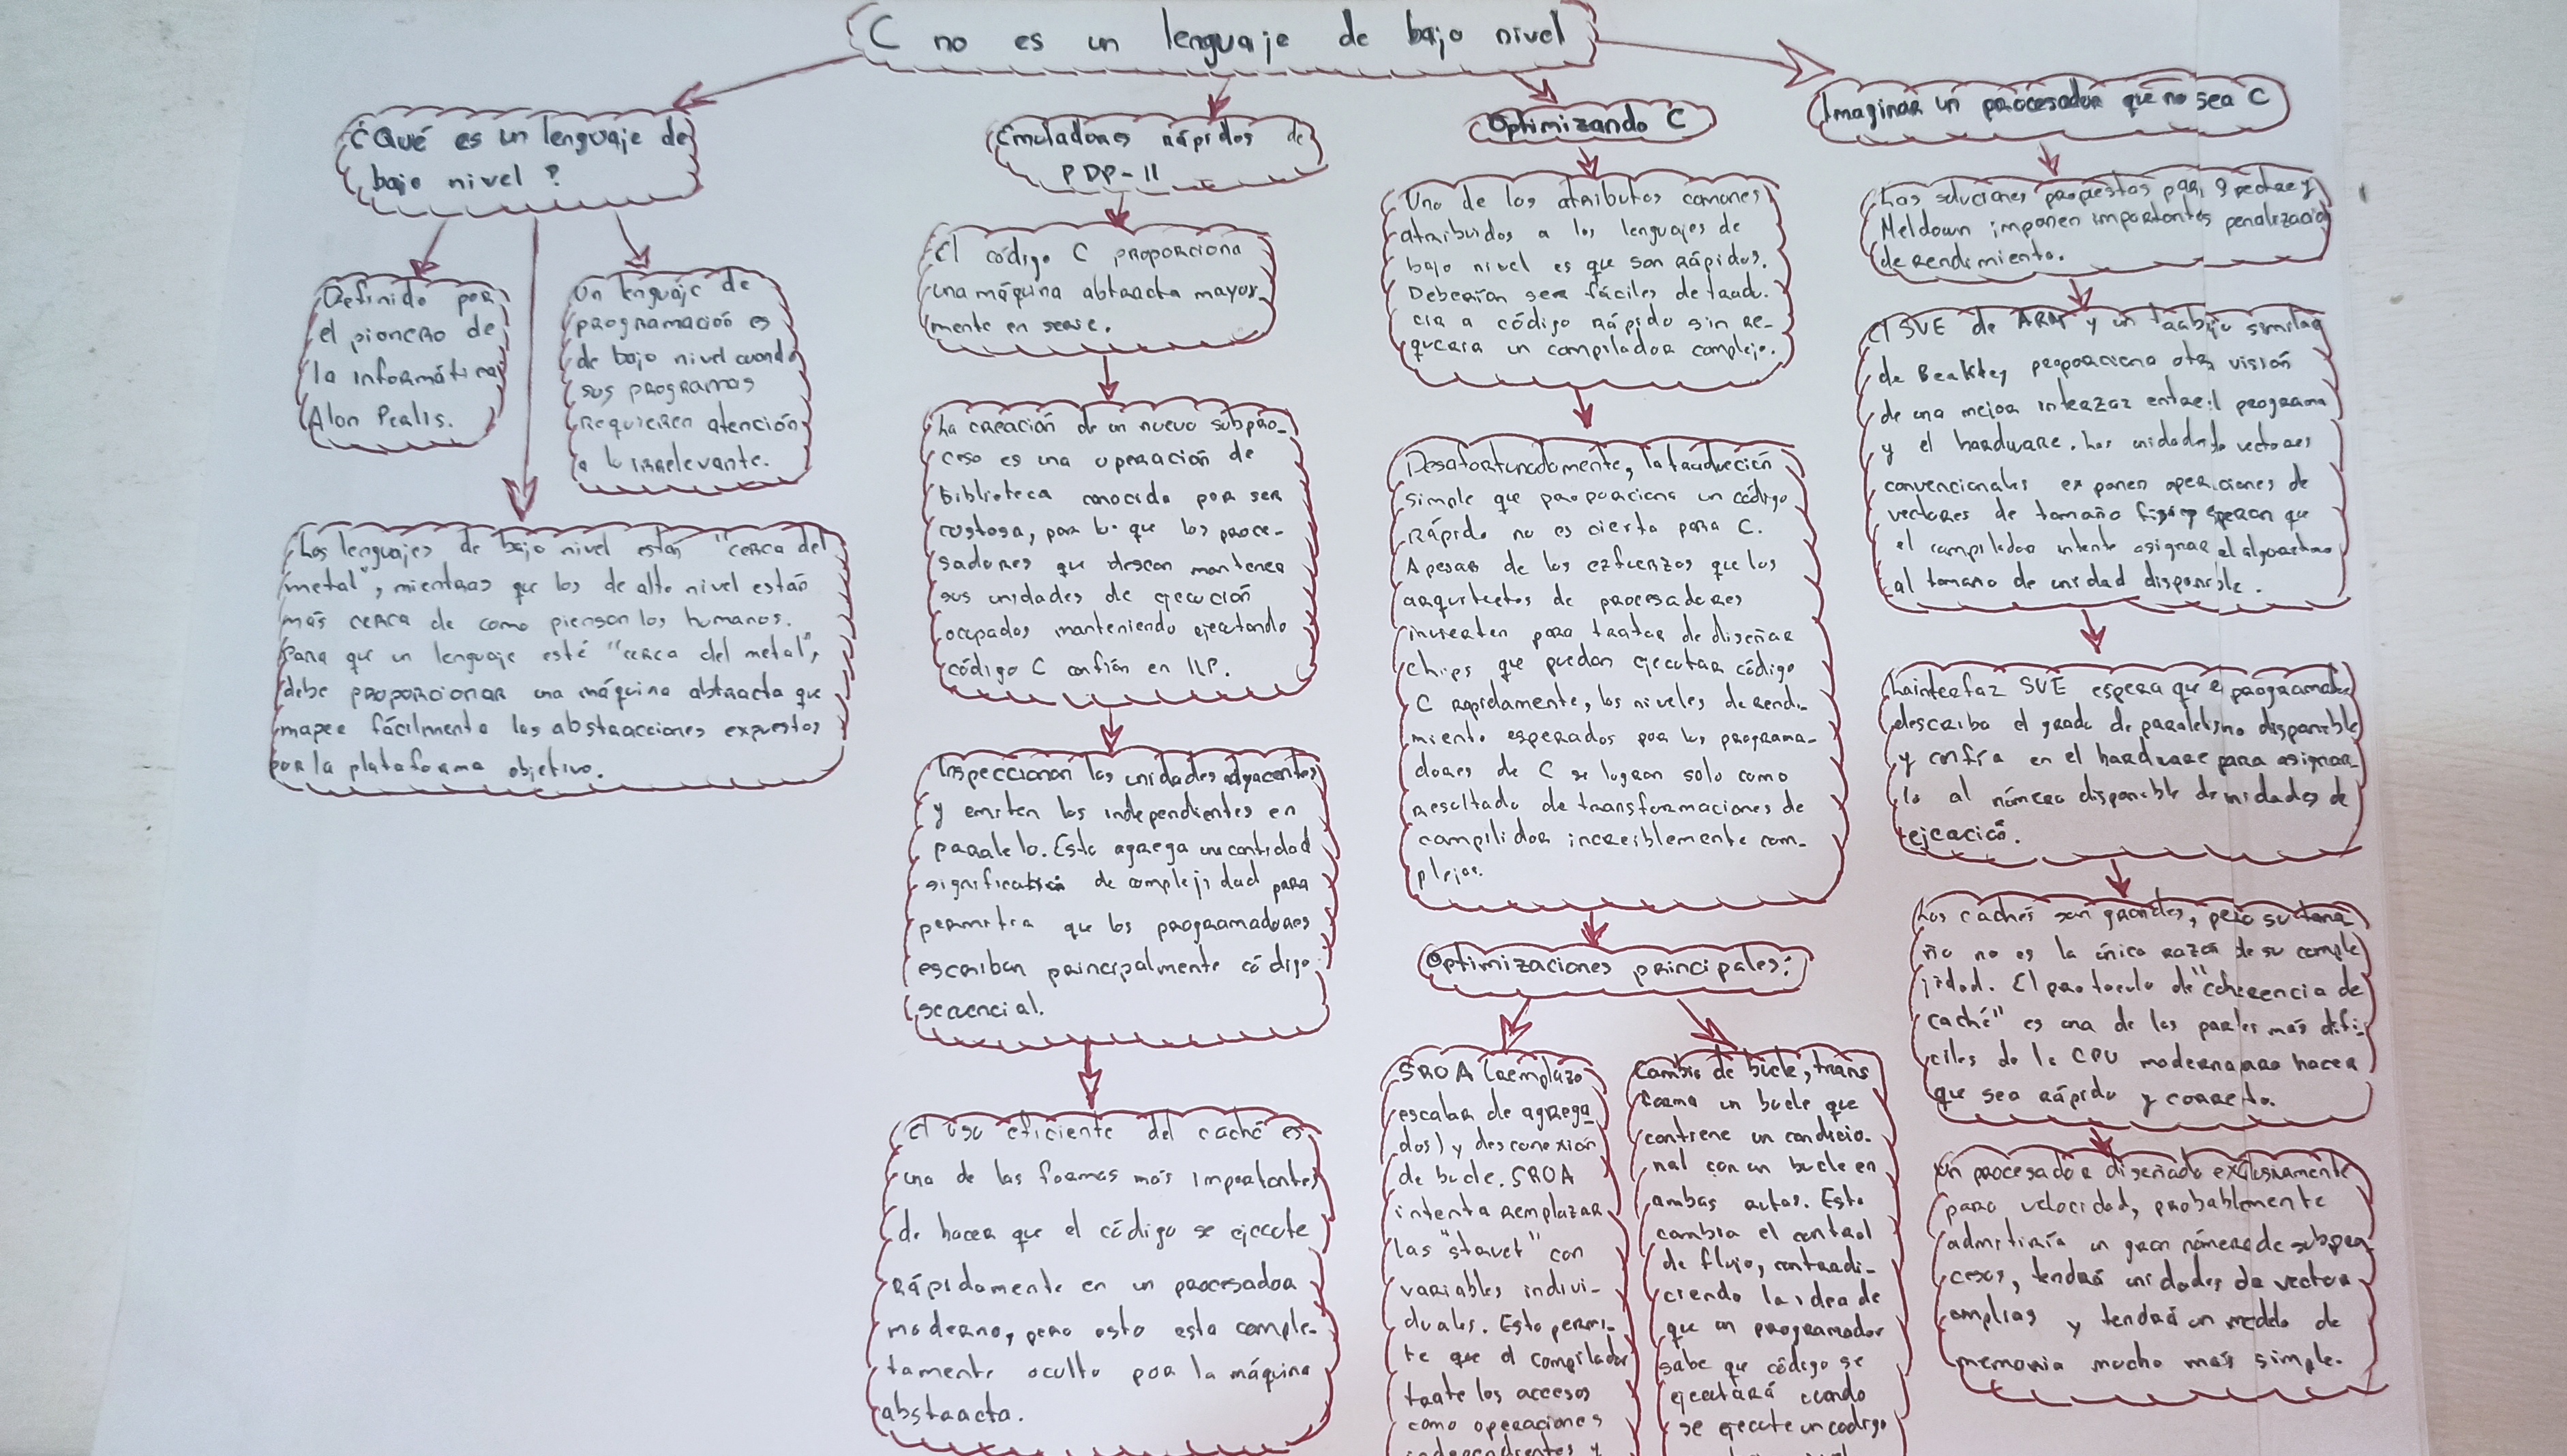 C no es un lenguaje de bajo nivel
¿Qué es un lenguaje de
bajo nivel?
Definido por
el pionero de
la informática
Alan Perlis.
Un lenguaje de
programación es
de bajo nivel cuando
sus programas
requieren atención
a lo irrelevante.
Los lenguajes de bajo nivel están "cerca del
metal", mientras que los de alto nivel están
más cerca de como piensan los humanos.
Para que un lenguaje esté "cerca del metal",
debe proporcionar una máquina abtracta que
mapee fácilmente las abstracciones expuestas
por la plataforma objetivo.
Emuladores rápidos de
PDP-11
El código C proporciona
una máquina abtracta mayor-
mente en serie.
La creación de un nuevo subpro-
ceso es una operación de
biblioteca conocida por ser
costosa, por lo que los proce-
sadores que desean mantener
sus unidades de ejecución
ocupados manteniendo ejecutando
código C confían en ILP.
Inspeccionan las unidades adyacentes
y emiten los independientes en
paralelo. Esto agrega una cantidad
significativa de complejidad para
permitir que los programadores
escriban principalmente código
secuencial.
El uso eficiente del caché es
una de las formas más importantes
de hacer que el código se ejecute
rápidamente en un procesador
moderno, pero esto esta comple-
tamente oculto por la máquina
abstracta.
Optimizando C
Uno de los atributos comunes
atribuidos a los lenguajes de
bajo nivel es que son rápidos.
Deberían ser fáciles de tradu-
cir a código rápido sin re-
querir un compilador complejo.
Desafortunadamente, la traducción
simple que proporciona un código
rápido no es cierta para C.
Apesar de los ezfuerzos que los
arquitectos de procesadores
invierten para tratar de diseñar
chips que puedan ejecutar código
C rapidamente, los niveles de rendi-
miento esperados por los programa-
dores de C se logran solo como
resultado de transformaciones de
compilidor increiblemente com-
plejas.
Optimizaciones principales:
SROA (remplazo
escalar de agrega-
dos) y desconexión
de bucle. SROA
intenta remplazar
las "struct" con
variables indivi-
duales. Esto permi-
te que el compilador
trate los accesos
como operaciones
independientes y
Cambio de bucle, trans
forma un bucle que
contiene un condicio-
nal con un bucle en
ambas rutas. Esto
cambia el control
de flujo, contradi-
ciendo la idea de
que un programador
sabe que código se
ejecutará cuando
se ejecute un codigo
Imaginar un procesador que no sea C
Las soluciones propuestas para Spectre y
Meldown imponen importantes penalización
de rendimiento.
El SVE de ARM y un trabajo similar
de Berkley proporciona otra visión
de una mejor interzaz entre el programa
y el hardware. Las unidades de vectores
convencionales exponen operaciones de
vectores de tamaño fijo y esperan que
el compilador intente asignar el algoritmo
al tamano de unidad disponible.
La interfaz SVE espera que el programador
describa el grado de paralelismo disponible
y confía en el hardware para asignar-
lo al número disponible de unidades de
ejecución.
Los cachés son grandes, pero su tama-
ño no es la única razón de su comple
jidad. El protocolo de "coherencia de
caché" es una de las partes más difi-
ciles de la CPU moderna para hacer
que sea rápido y correcto.
Un procesador diseñado exclusivamente
para velocidad, probablemente
admitiría un gran número de subpro-
cesos, tendrá unidades de vector
amplias y tendrá un modelo de
memoria mucho más simple.